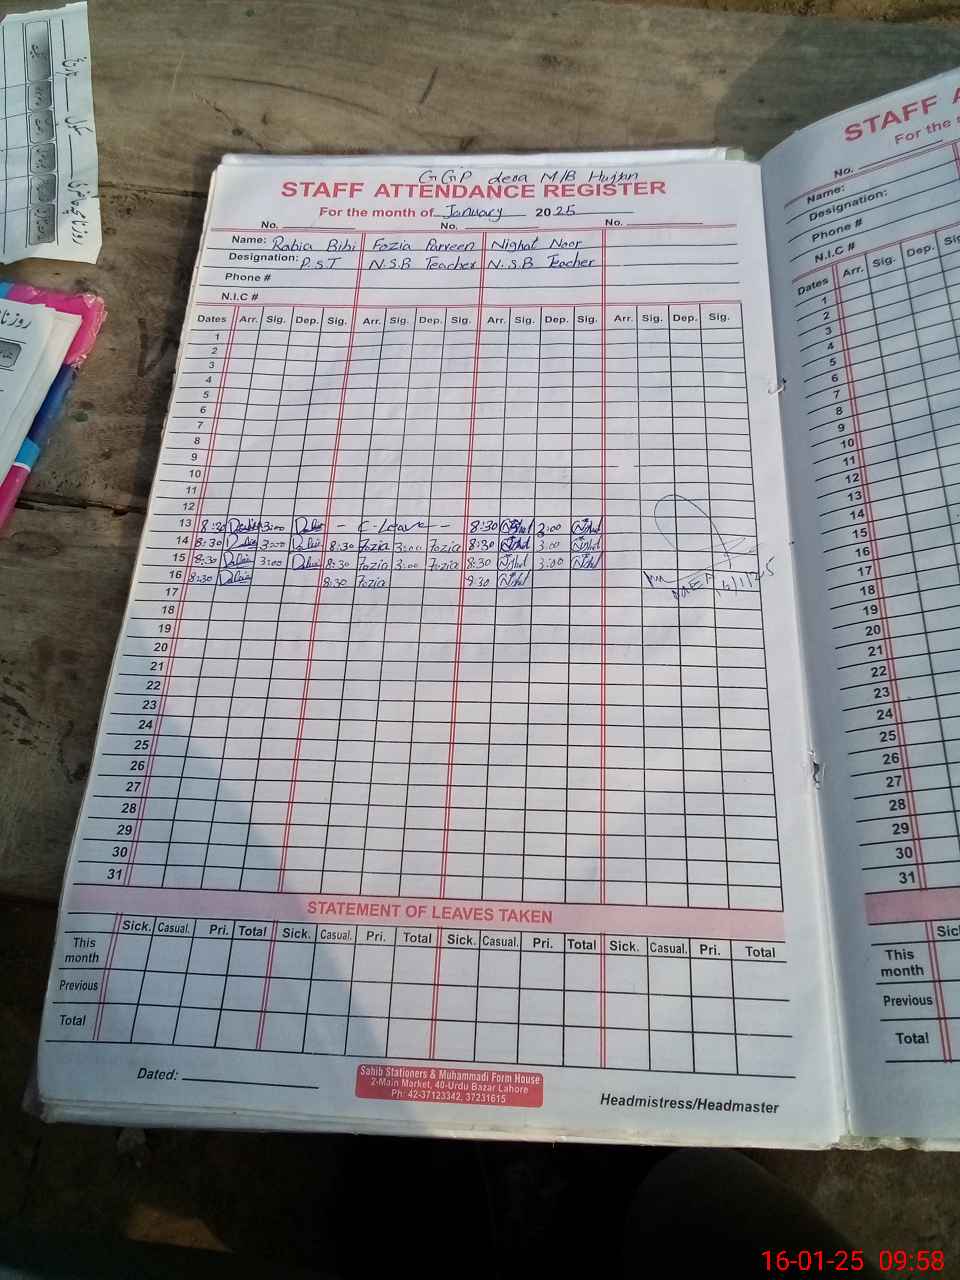 GGP dera M/B Hujan
STAFF ATTENDANCE REGISTER
For the month of January 2025
No. No. No.
Name: Rabia Bibi Fozia Parveen Nighat Noor
Designation: P.S.T N.S.B Teacher N.S.B Teacher
Phone #
N.I.C #
Dates Arr. Sig. Dep. Sig. Arr. Sig. Dep. Sig. Arr. Sig. Dep. Sig. Arr. Sig. Dep. Sig.
1
2
3
4
5
6
7
8
9
10
11
12
13 8:30 3:00 - C-Leave - 8:30 3:00
14 8:30 3:00 8:30 Fozia 3:00 Fozia 8:30 3:00
15 8:30 3:00 8:30 Fozia 3:00 Fozia 8:30 3:00
16 8:30 8:30 Fozia 8:30
17
18
19
20
21
22
23
24
25
26
27
28
29
30
31
STATEMENT OF LEAVES TAKEN
Sick. Casual. Pri. Total Sick. Casual. Pri. Total Sick. Casual. Pri. Total Sick. Casual. Pri. Total
This month
Previous
Total
Dated:
Sahib Stationers & Muhammadi Form House
2-Main Market, 40-Urdu Bazar Lahore
Ph: 42-37123342, 37231615
Headmistress/Headmaster
STAFF
For the
No.
Name:
Designation:
Phone #
N.I.C #
Dates Arr. Sig. Dep.
1
2
3
4
5
6
7
8
9
10
11
12
13
14
15
16
17
18
19
20
21
22
23
24
25
26
27
28
29
30
31
This month
Previous
Total
16-01-25 09:58